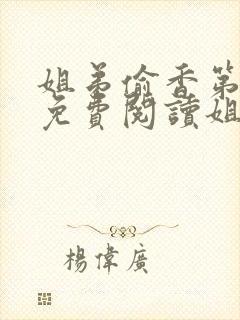 姐弟偷香第
免費閱讀姐
楊偉廣